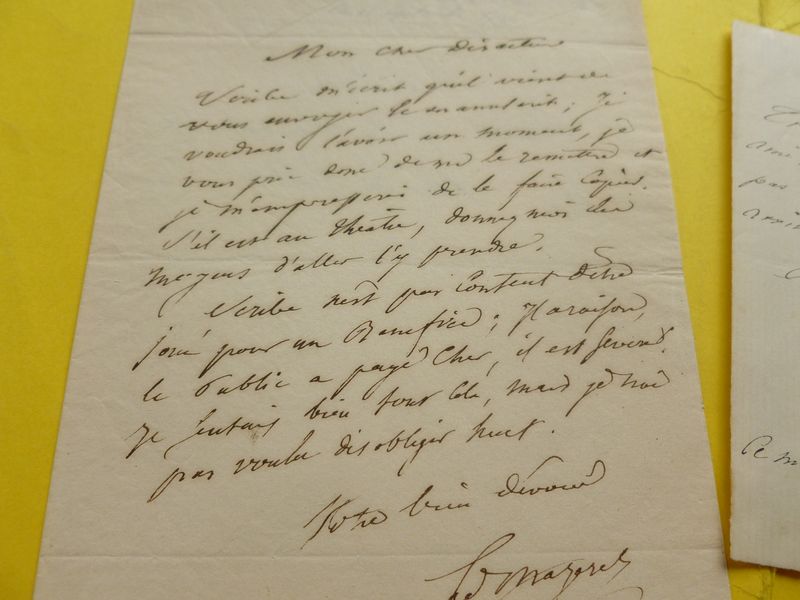 Mon cher directeur
Scribe m'écrit qu'il vient de
vous envoyer le manuscrit; Je
voudrais l'avoir un moment, je
vous prie donc de me le remettre et
je m'empresserai de le faire copier.
S'il est au théâtre, donnez moi les
moyens d'aller l'y prendre.
Scribe n'est pas content d'être
joué pour un Bénéfice; Il a raison,
le Public a payé cher, il est sévère.
Je sentais bien tout cela, mais je n'ai
pas voulu désobliger
Votre bien dévoué
Ed Mazeres
pas